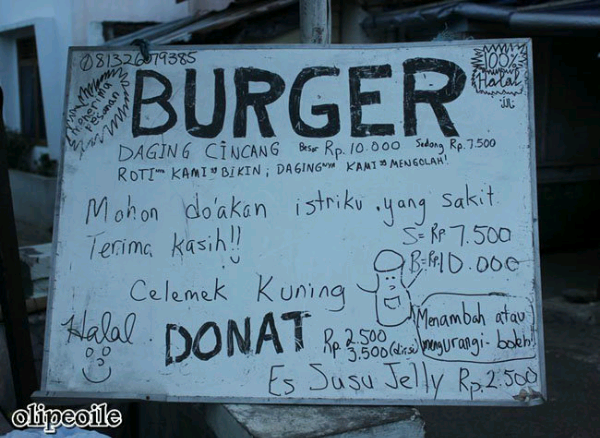 081326079385
Menerima
Pesanan
100%
Halal
BURGER
DAGING CINCANG Besar Rp. 10.000 Sedang Rp. 7.500
ROTI KAMI BIKIN; DAGING KAMI MENGOLAH!
Mohon do'akan istriku yang sakit.
Terima Kasih!!
S = Rp 7.500
B = Rp 10.000
Celemek Kuning
Halal
DONAT
Rp. 2.500
Rp. 3.500 (diisi)
Menambah atau
mengurangi boleh!
Es Susu Jelly Rp. 2.500
olipeoile